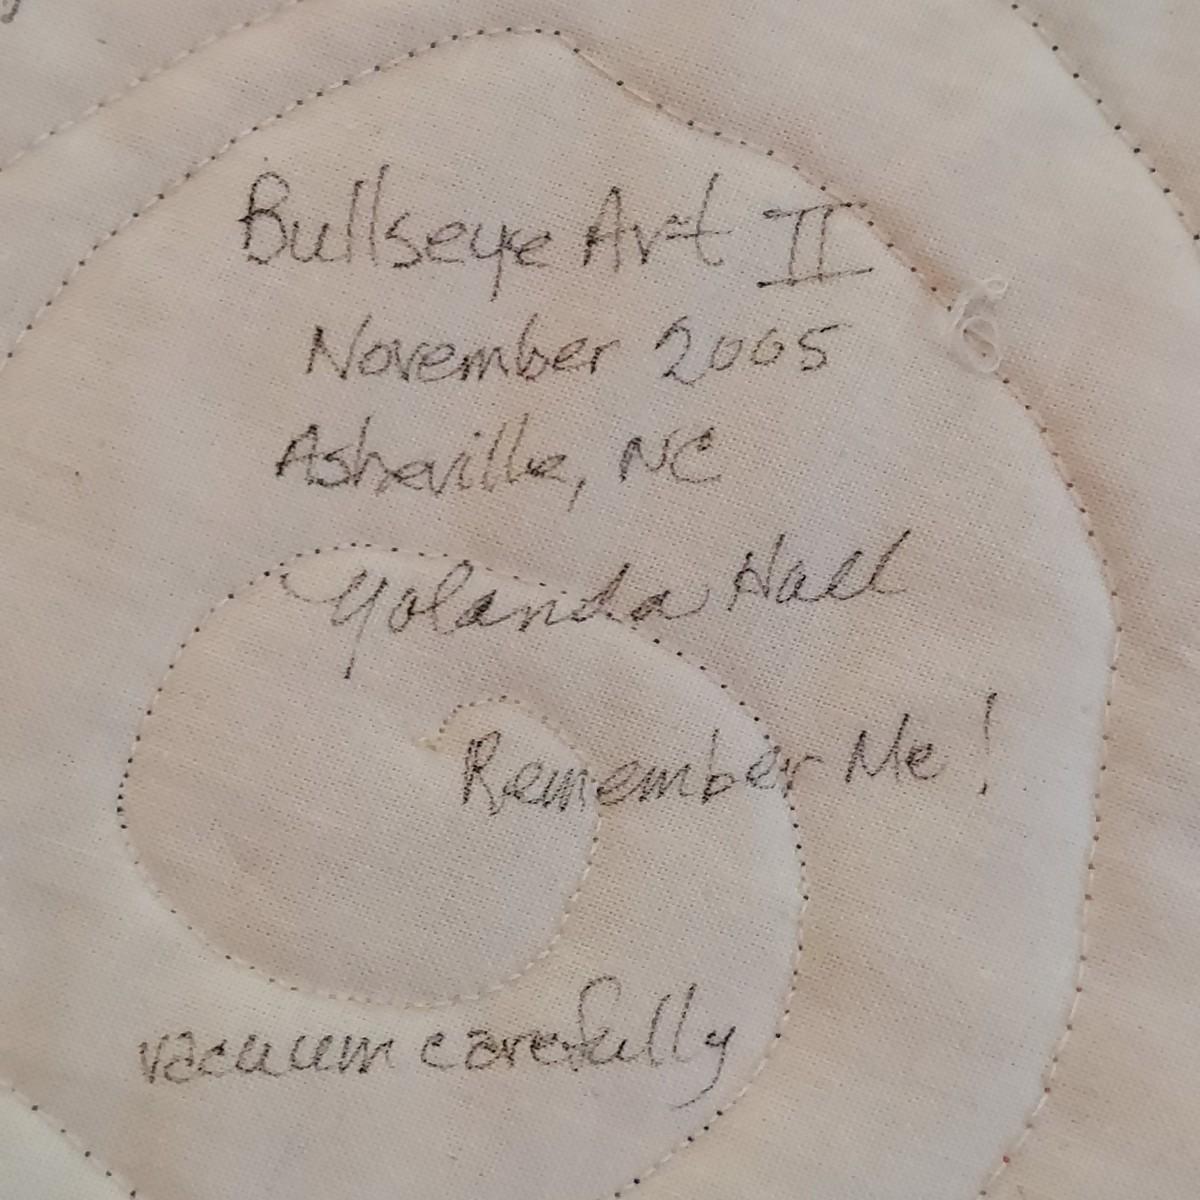 Bullseye Art II
November 2005
Asheville, NC
Yolanda Hall
Remember Me!
vacuum carefully